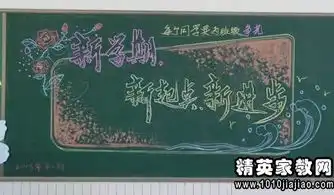 每个同学要为班级争光
新学期、
新起点、新进步
精英家教网
www.1010jiajiao.com